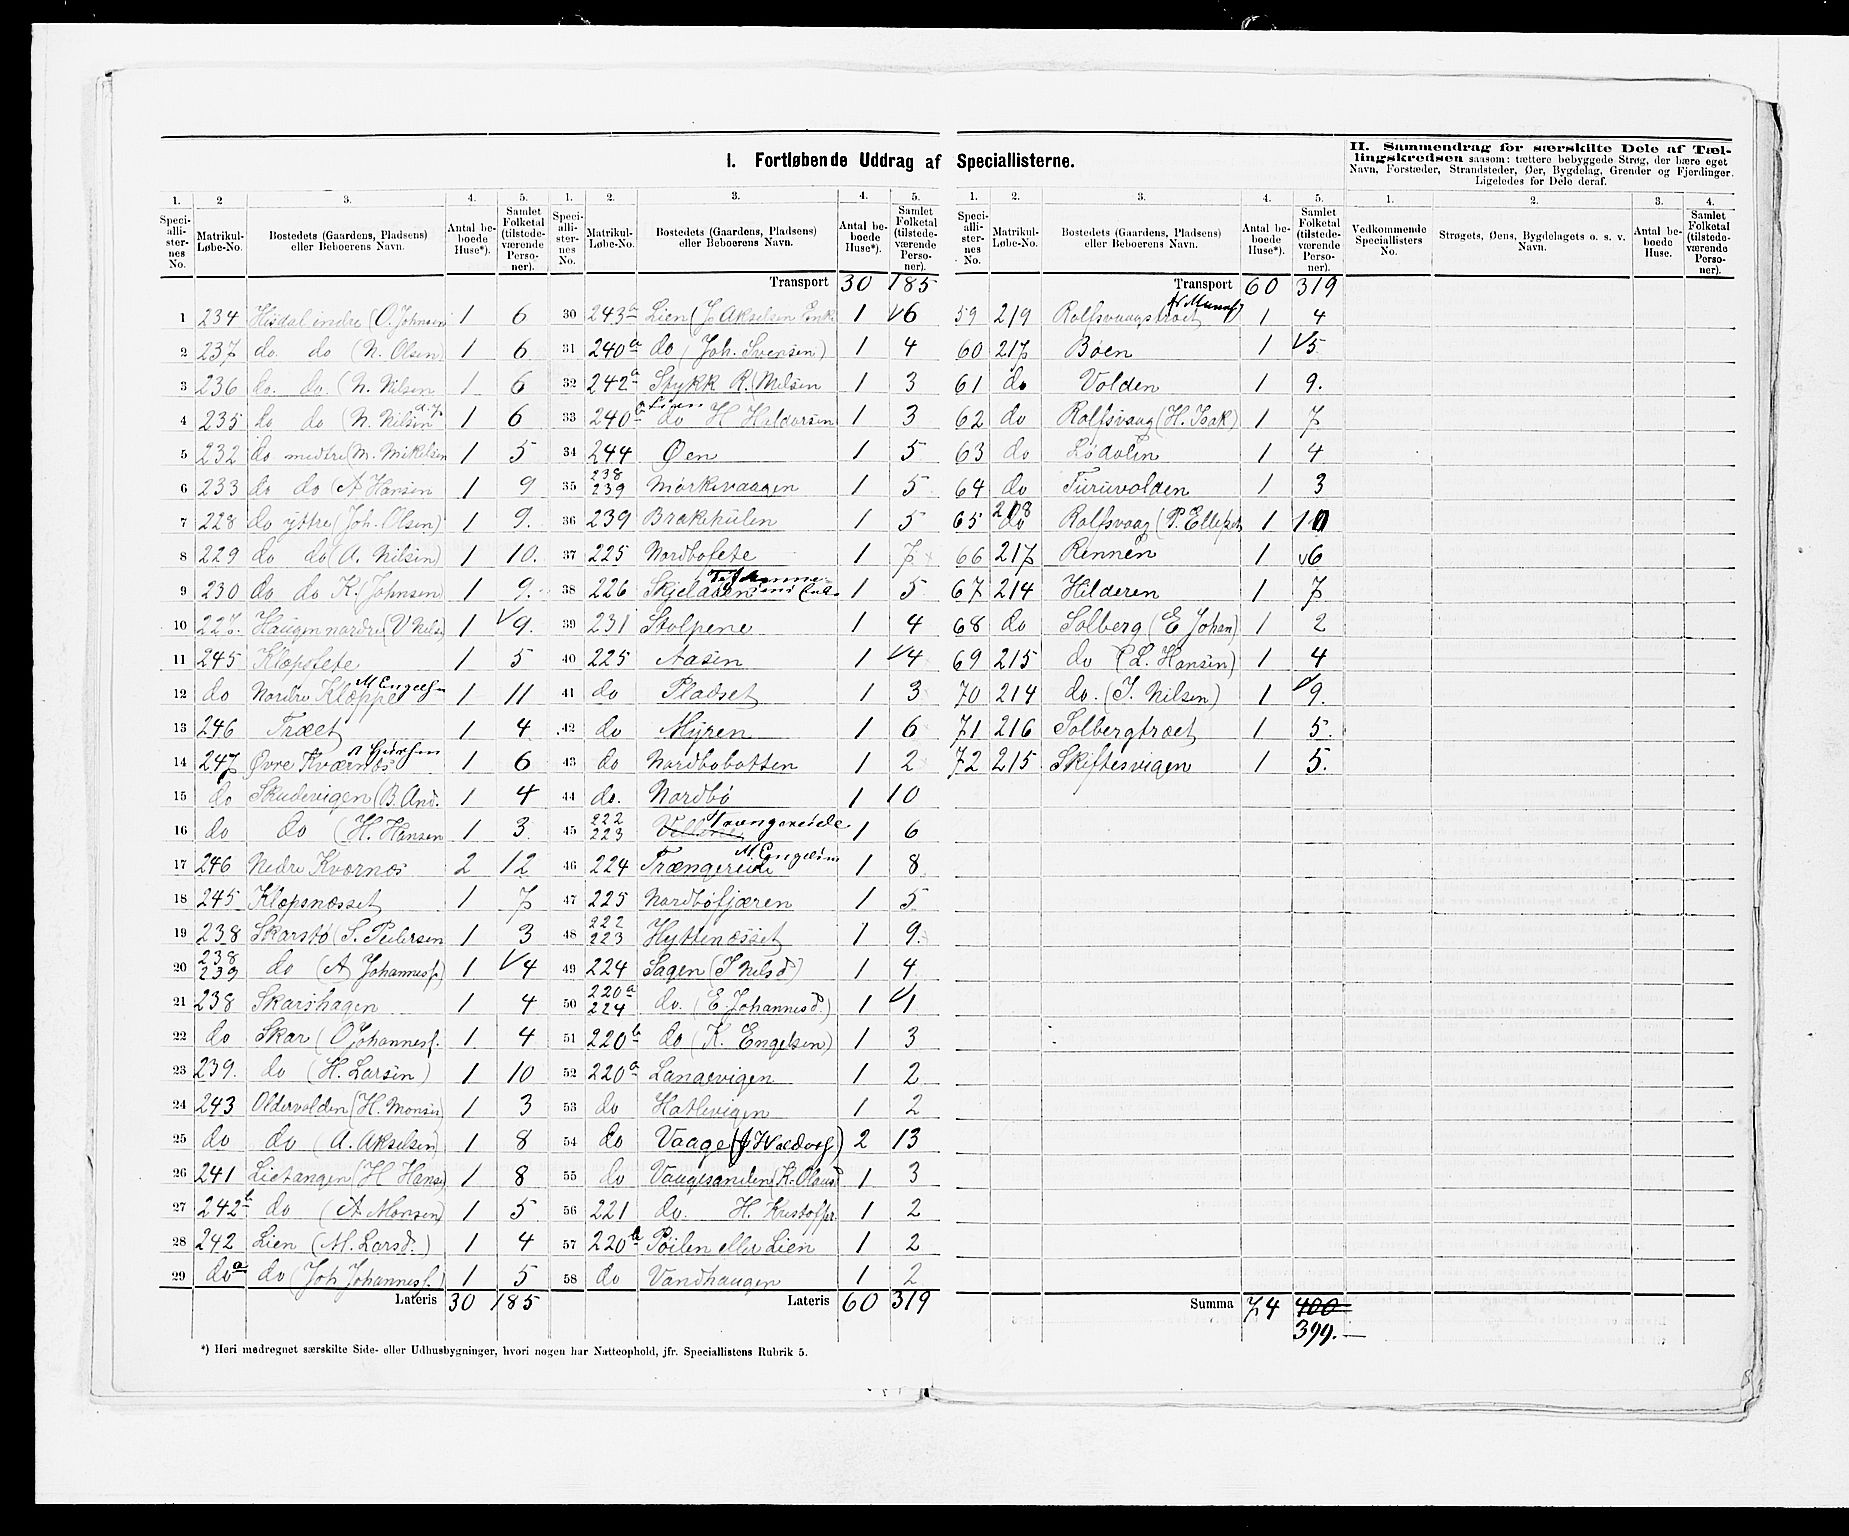 I. Fortløbende Uddrag af Speciallisterne.
II. Sammendrag for særskilte Dele af Tæl-
lingskredsen saasom: tættere bebyggede Strøg, der bære eget
Navn, Forstæder, Strandsteder, Øer, Bygdelag, Grender og Fjerdinger.
Ligeledes for Dele deraf.
1. 2 3. 4. 5.
Speci-alli-ster-nes No. Matrikul-Løbe-No. Bostedets (Gaardens, Pladsens) eller Beboerens Navn. Antal be-boede Huse*). Samlet Folketal (tilstede-værende Perso-ner).
1 234 Hisdal indre (O. Johnsen) 1 6
2 237 do. do (N. Olsen) 1 6
3 236 do. do. (N. Nilsen 1 6
4 235 do do (N. Nilsen d.y. 1 6
5 232 do medtre (M. Mikelsen 1 5
6 233 do do (A Hansen 1 9
7 228 do ytre (Joh. Olsen) 1 9.
8 229 do do (A. Nilsen) 1 10.
9 230 do do K. Johnsen 1 9.
10 227. Haugen nordre (V Nils 1 9.
11 245 Klopstete 1 5
12 do Nordre Kloppe M Engelsn 1 11
13 246 Træet 1 4
14 247 Øvre Kværnøs 1 6
15 do Skudevigen (B. And. 1 4
16 do do (H. Hansen 1 3.
17 246 Nedre Kvernøs 2 12
18 245 Klopsnæsset 1 7
19 238 Skarstø (S. Pedersen 1 3
20 238 239 do (A Johannesf.) 1 4
21 238 Skarshagen 1 4
22 do Skar (O Johannesf. 1 4
23 239. do (H. Larsen) 1 10
24 243 Oldervolden (H. Monsen) 1 3
25 do do (A. Akselsen) 1 8
26 241 Lietangen (H Hanse) 1 8
27 242b do (A Monsen) 1 5
28 242 Lien (M. Larsd.) 1 4
29 doa do (Joh Johannesf.) 1 5
Lateris 30 185
1. 2. 3. 4. 5.
Speci-alli-ster-nes No. Matrikul-Løbe-No. Bostedets (Gaardens, Pladsens) eller Beboerens Navn. Antal be-boede Huse*). Samlet Folketal (tilstede-værende Perso-ner).
Transport 30 185
30 243b Lien (J Akselsen Enke 1 6
31 240a do (Joh. Svensen) 1 4
32 242a Stykk R. (Milsen 1 3
33 240b Lien do H Haldorsen 1 3
34 244 Øen 1 5
35 238 239 Morkevaagen 1 5
36 239 Brakehulen 1 5
37 225 Nordbofete 1 7
38 226 Skjelaaen 1 5
39 231 Stolpene 1 4
40 225 Aasen 1 4
41 do Pladset 1 3
42 do Myren 1 6
43 do Nordbobotten 1 2
44 do. Nordbø 1 10
45 222 223 Trængereide 1 6
46 224 Trængereide M. Engelsen 1 8
47 225 Nordbøfjæren 1 5
48 222 223 Hyttenæsset 1 9.
49 224 Sagen (I Nilsd) 1 4
50 220a 224 do. (E. Johannesd.) 1 1
51 220b do (K. Engelsen) 1 3
52 220a Langevigen 1 2
53 do Hatlevigen 1 2
54 do Vaage (J Haldorf) 2 13
55 do Vaagesanden (K. Olausd 1 3
56 221 do. H. Kristoffer. 1 2
57 220b Pøilen eller Lien 1 2
58 do Vandhaugen 1 2
Lateris 60 319
1. 2. 3. 4. 5.
Speci-alli-ster-nes No. Matrikul-Løbe-No. Bostedets (Gaardens, Pladsens) eller Beboerens Navn. Antal be-boede Huse*). Samlet Folketal (tilstede-værende Perso-ner).
Transport 60 319
59 219 Rolfsvaagstræet 1 4
60 217 Bøen 1 5
61 do Volden 1 9.
62 do Rolfsvaag (H. Isak) 1 7
63 do Lødolin 1 4
64 do Furuvolden 1 3
65 218 do Rolfsvaag (P. Ellefsen 1 10
66 217 Rennen 1 6
67 214 Hilderen 1 7
68 do Solberg (E Johan) 1 2
69 215 do (L. Hansen) 1 4
70 214 do. (I. Nilsen) 1 9.
71 216 Solbergtræet 1 5.
72 215 Skiftesvigen 1 5.
Summa 74 400
399.—
1. 2. 3. 4.
Vedkommende Speciallisters No. Strøgets, Øens, Bygdelagets o. s. v. Navn. Antal be-boede Huse. Samlet Folketal (tilstede-værende Perso-ner).
*) Heri medregnet særskilte Side- eller Udhusbygninger, hvori nogen har Natteophold, jfr. Speciallistens Rubrik 5.